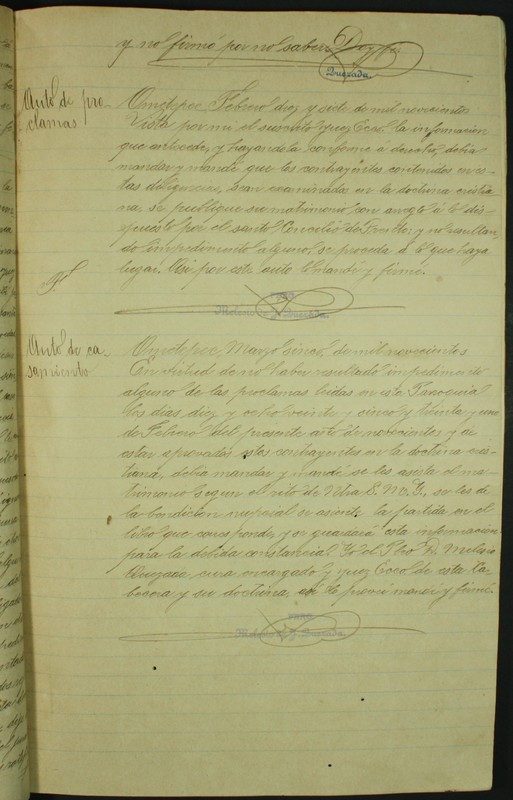 y no firmó por no saber. Doy fé.
Quezada.
Auto de pro
clamas
Ometepec, Febrero diez y siete de mil novecientos
Vista por mi el suscrito Juez Ecco. la información
que antecede, y hayandola conforme á derecho, debia
mandar y mandé que los contrayentes contenidos en es-
tas diligencias, sean examinados en la doctrina cristia
na, se publique su matrimonio con arreglo á lo dis-
puesto por el santo Concilio de Trento, y no resultan
do impedimento alguno, se proceda á lo que haya
lugar. Asi por este auto lo mandé y firmé.
PBRO.
Melesio de J. Quezada.
Auto de ca
samiento
Ometepec, Marzo sinco, de mil novecientos
En virtud de no haber resultado impedimento
alguno de las proclamas leidas en esta Parroquial
los dias diez y ocho veinte y sinco y treinta y uno
de Febrero del presente año de novecientos y de
estar aprovados estos contrayentes en la doctrina cris
tiana, debia mandar y mandé se les asista el ma-
trimonio segun el rito de Ntra S. M. Y., se les dé
la bendicion nupcial se asiente la partida en el
libro que corresponde, y se guardará esta información
para la debida constancia. Yo el Pbro D. Melesio
Quezada, cura encargado y juez Ecco de esta Ca-
becera y su doctrina, asi lo proveí mandé y firmé.
PBRO.
Melesio de J. Quezada.